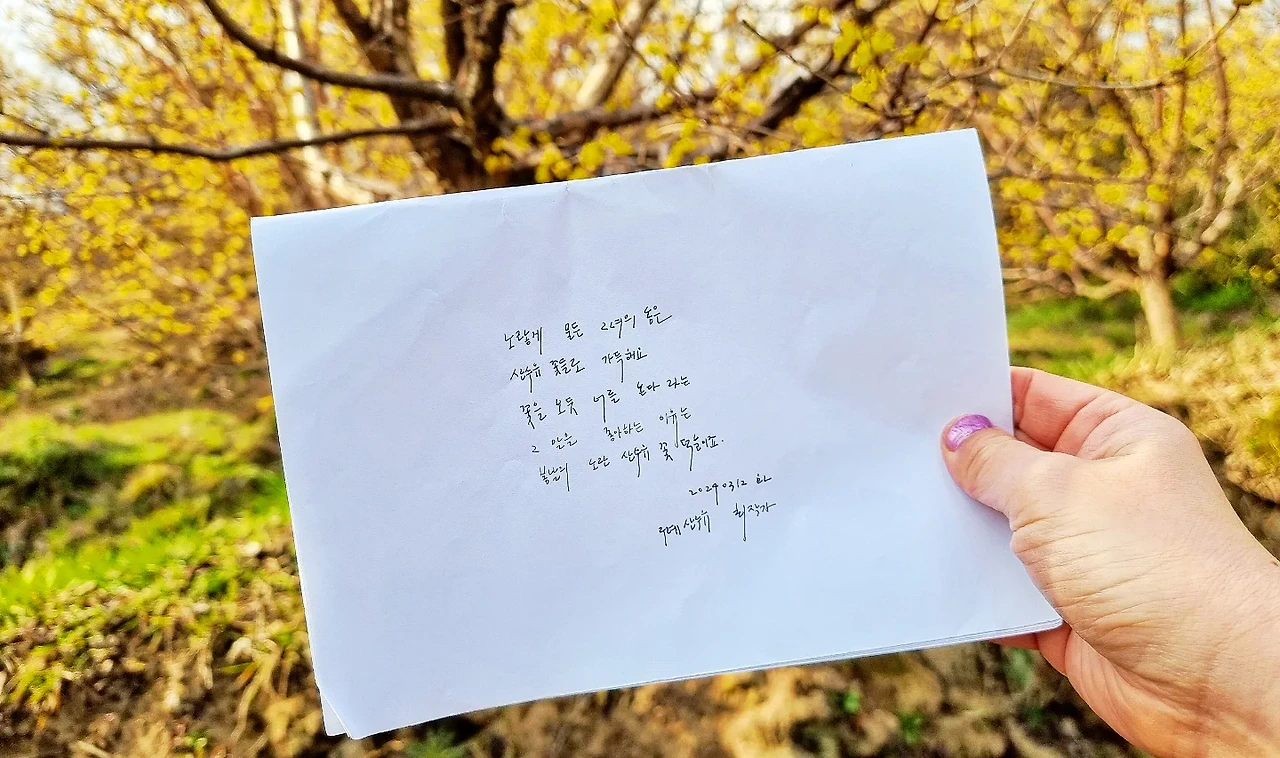 노랗게 물든 그녀의 봄은
산수유 꽃들로 가득해요
꽃을 보듯 너를 본다 라는
그 말을 좋아하는 이유는
봄날의 노란 산수유 꽃 때문이죠.
20240312 화
구례산수유 최작가